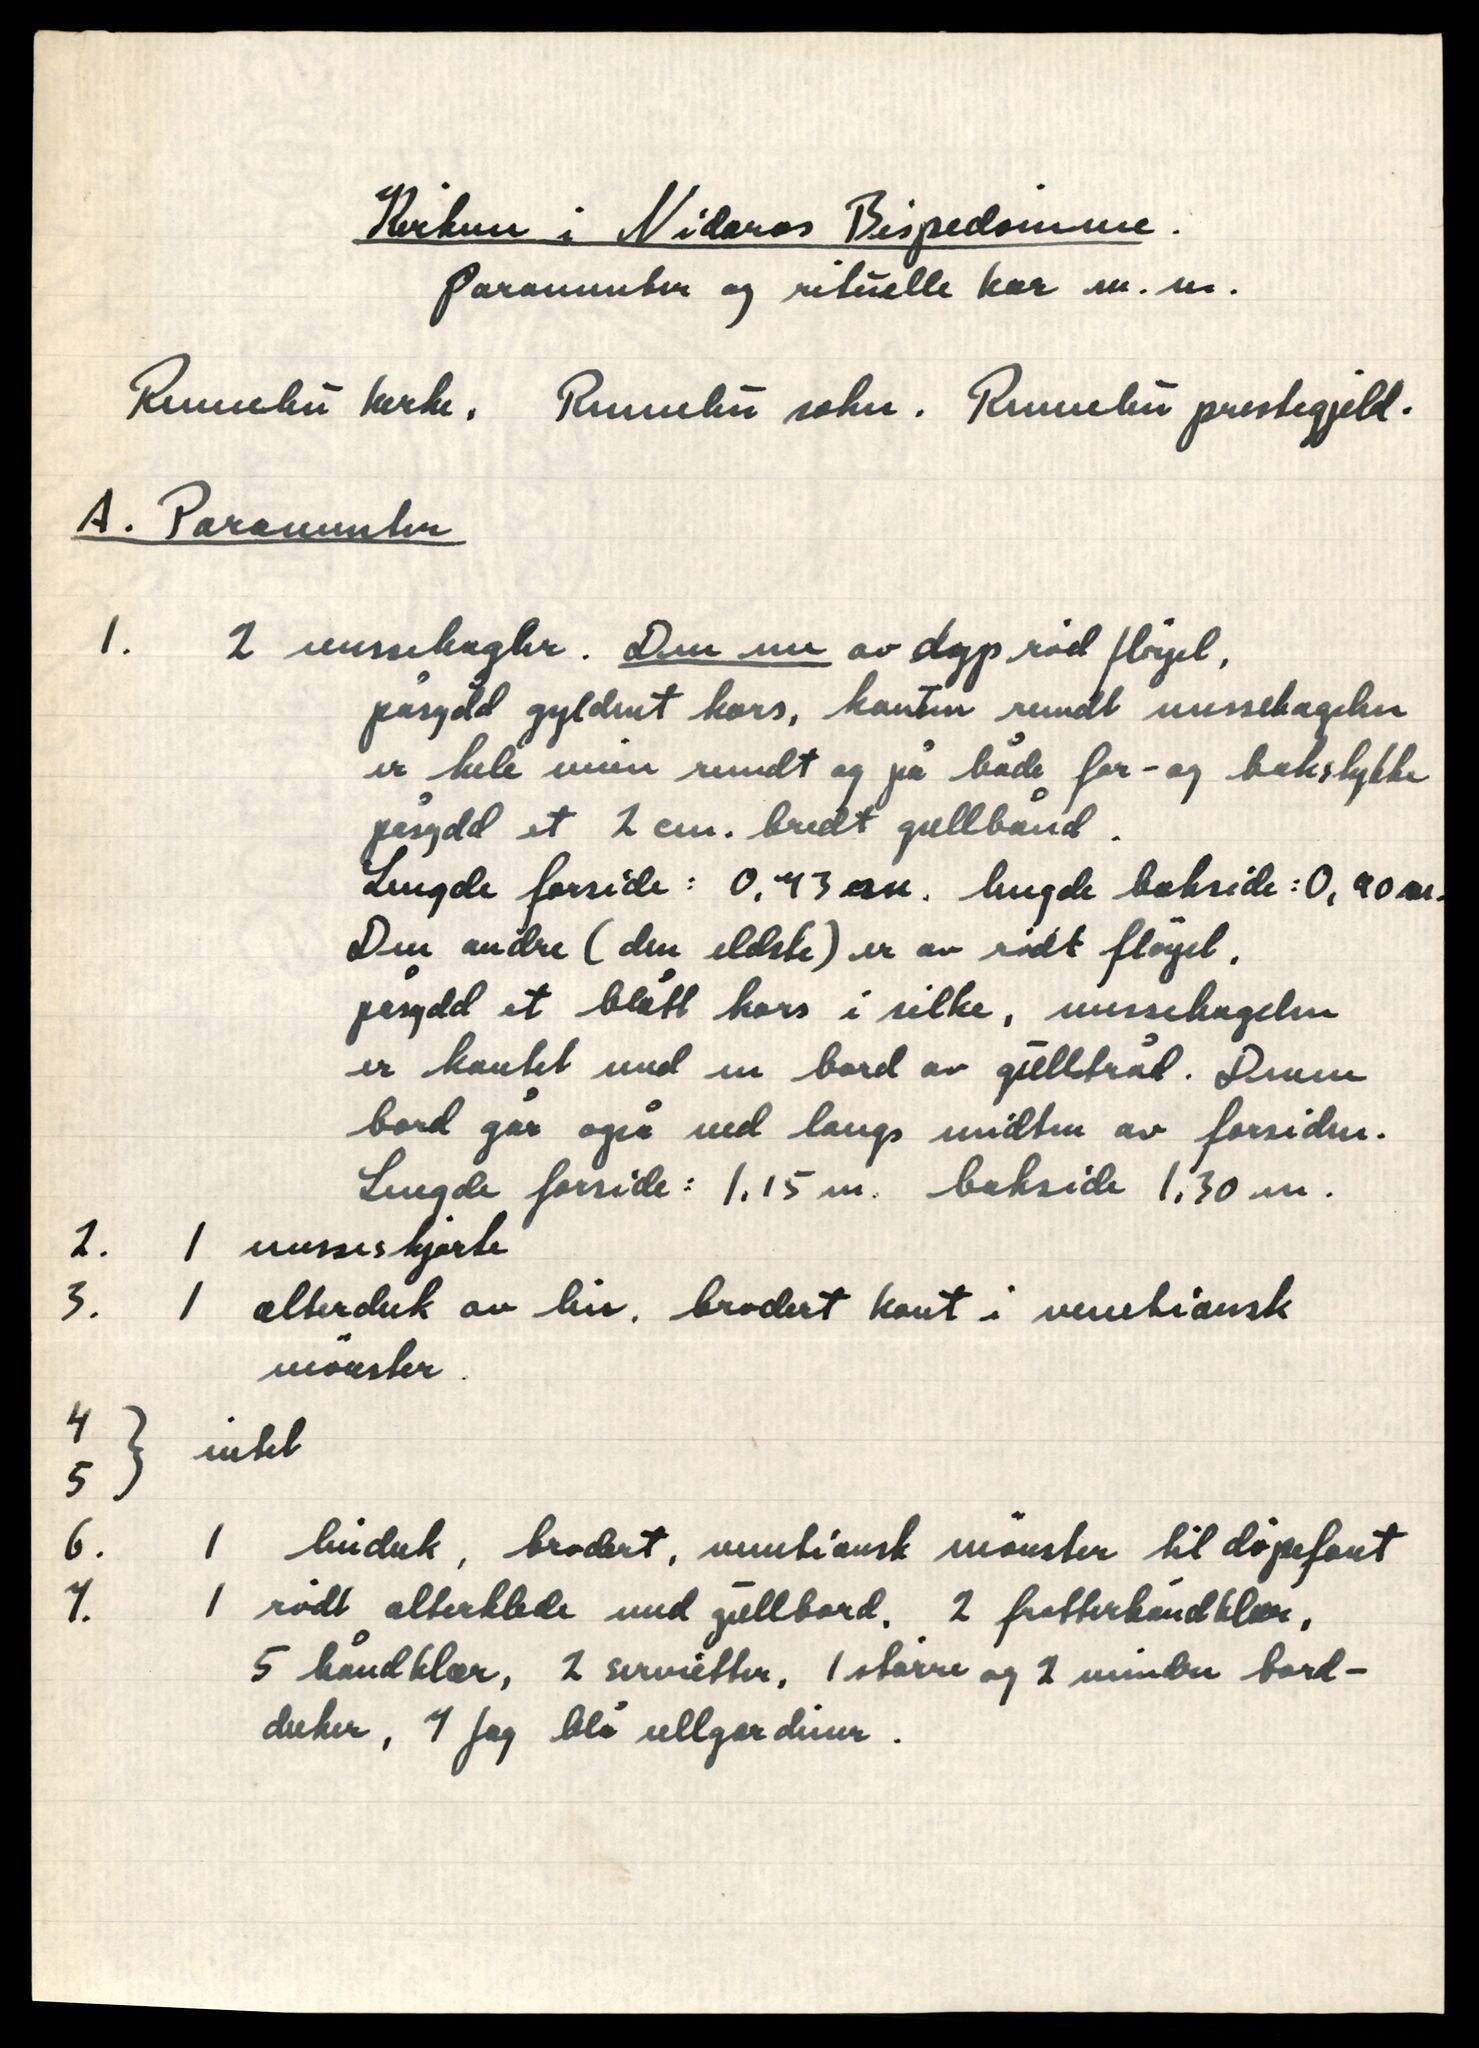 Kirken i Nidaros Bispedømme.
Paramenter og rituelle kar m.m.
Rennebu kirke. Rennebu sokn. Rennebu prestegjeld.
A. Paramenter
1. 2 messehagler. Den ene av dyp rød fløyel,
påsydd gyldent kors, kanten rundt messehagelen
er hele veien rundt og på både for- og bakstykke
påsydd et 2 cm. bredt gullbånd.
Lengde forside: 0,73 m. lengde bakside: 0,90 m.
Den andre (den eldste) er av rødt fløyel,
påsydd et blått kors i silke, messehagelen
er kantet med en bord av gulltråd. Denne
bord går også ned langs midten av forsiden.
Lengde forside: 1,15 m. bakside 1,30 m.
2. 1 messeskjorte
3. 1 alterduk av lin, brodert kant i venetiansk
mønster.
4
5 } intet
6. 1 linduk, brodert, venetiansk mønster til døpefont
7. 1 rødt alterklede med gullbord. 2 frotterhåndklær,
5 håndklær, 2 servietter, 1 større og 2 mindre bord-
duker, 7 fag blå ullgardiner.